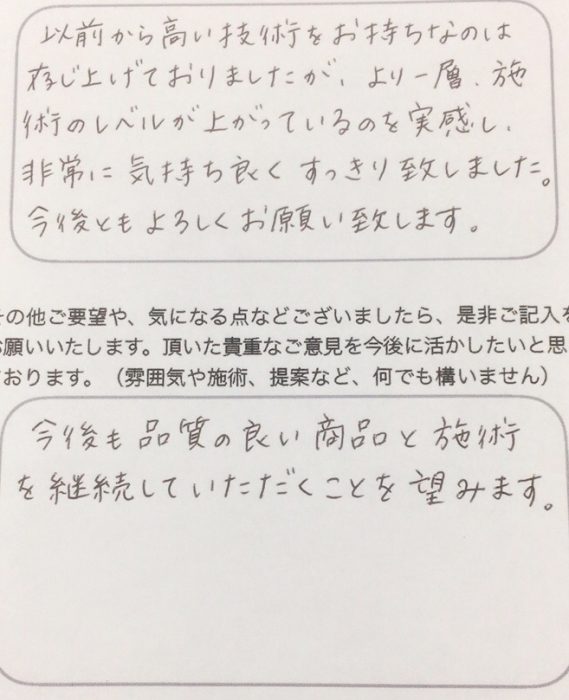 以前から高い技術をお持ちなのは
存じ上げておりましたが、より一層、施
術のレベルが上がっているのを実感し、
非常に気持ち良くすっきり致しました。
今後ともよろしくお願い致します。
その他ご要望や、気になる点などございましたら、是非ご記入を
お願いいたします。頂いた貴重なご意見を今後に活かしたいと思
ております。（雰囲気や施術、提案など、何でも構いません）
今後も品質の良い商品と施術
を継続していただくことを望みます。